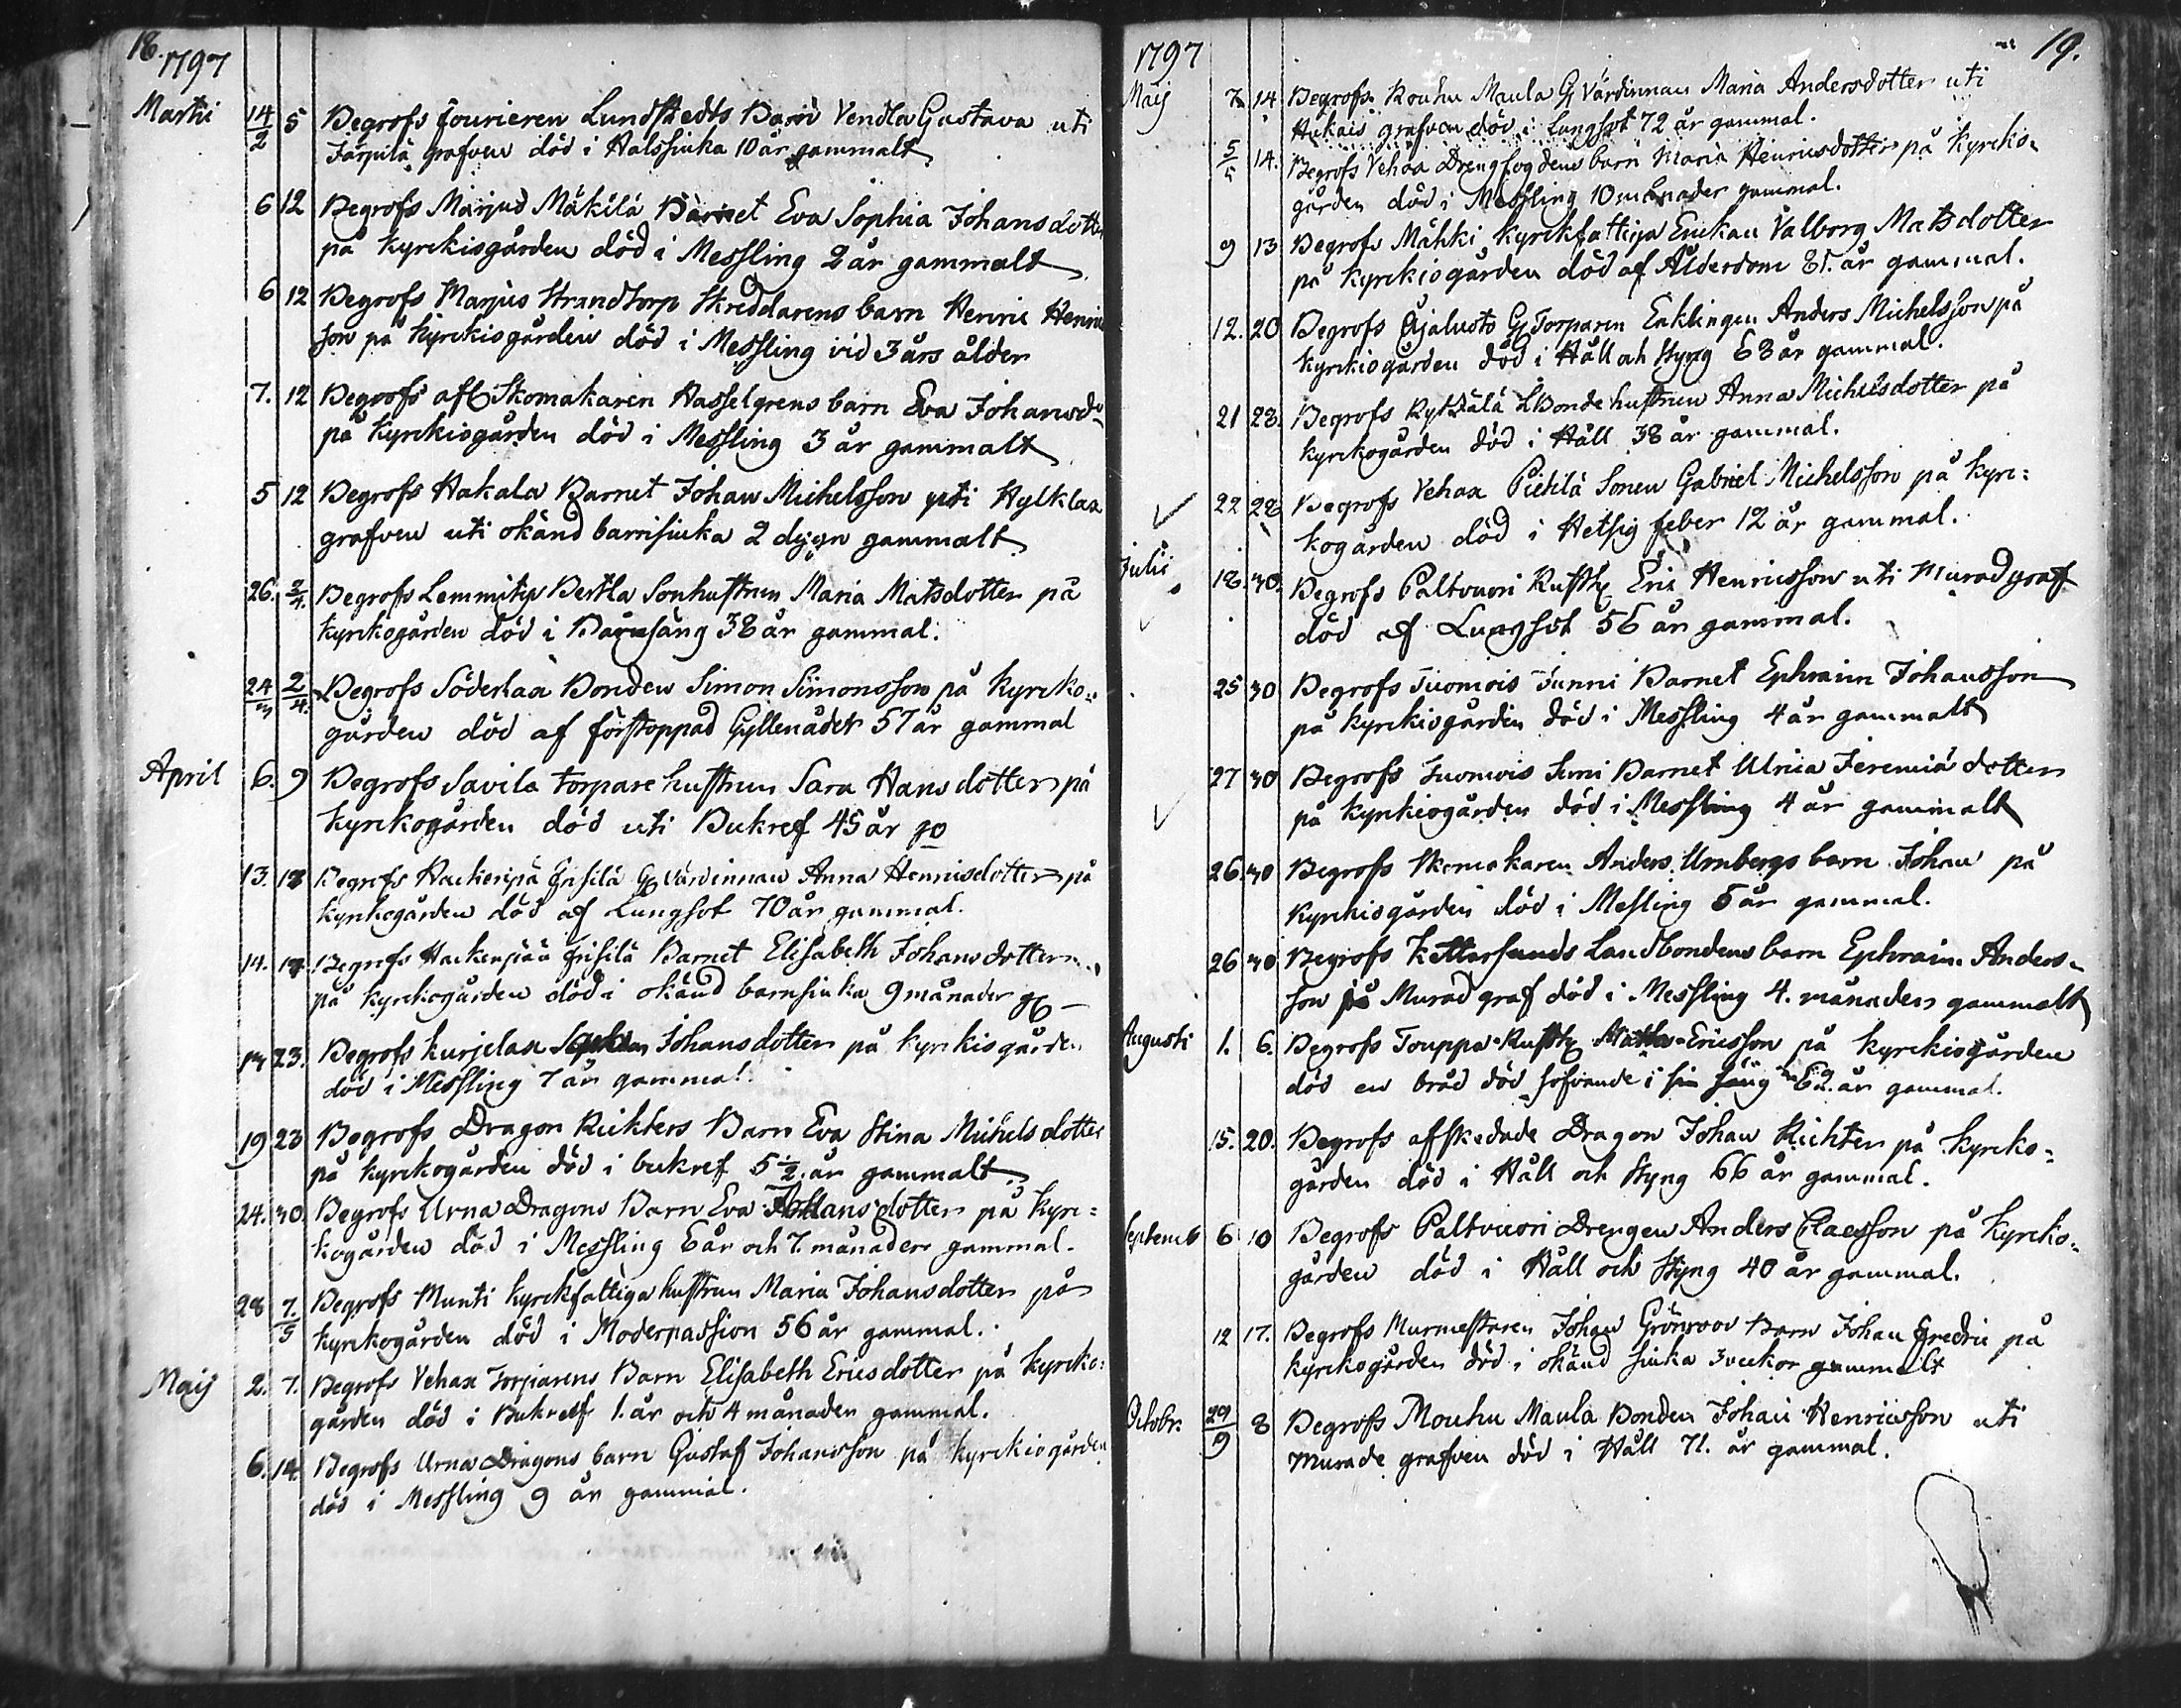 18. 1797
Martii 14/2 5 Begrofs Fourieren Lundstedts Barn Vendla Gustava uti
Järpilä grafven död i Halssiuka 10 år gammalt
6 12 Begrofs Marjus Mäkilä Barnet Eva Sophia Johansdotter
på Kyrckiogården död i Messling 2 år gammalt
6 12 Begrofs Marjus Strandtorp Skreddarens barn Henric Henric
son på Kyrckiogården död i Messling vid 3 års ålder
7. 12 Begrofs afl Skomakaren Hasselgrens barn Eva Johansdr
på Kyrckiogården död i Messling 3 år gammalt
5 12 Begrofs Hakala Barnet Johan Michelsson uti Hylklax
grafven uti okänd barnsiuka 2 dygn gammalt
26. 2/4. Begrofs Lemmitys Bertla Sonhustrun Maria Matsdotter på
Kyrckogården död i Barnsäng 38 år gammal.
24/m 2/4. Begrofs Söderlax Bonden Simon Simonsson på Kyrcko-
gården död af förstoppad Gyllenåder 57 år gammal
April 6. 9 Begrofs Savila torpare hustrun Sara Hansdotter på
Kyrckogården död uti Bukref 45 år
13. 17 Begrofs Hackenpä Frisilä Gl Värdinnan Anna Henricsdotter på
Kyrckogården död af Lungsot 70 år gammal.
14. 17. Begrofs Hackenpää Frisilä Barnet Elisabeth Johansdotter
på kyrckogården död i okänd barnsiuka 9 månader gl
23. Begrofs Kurjelax Johansdotter på Kyrckiogården
död i Messling 7 år gammal.
19 23 Begrofs Dragon Richters Barn Eva Stina Michelsdotter
på kyrckogården död i bukref 5 1/2 år gammalt
24. 30. Begrofs Urna Dragons Barn Eva Johansdotter på Kyrc=
kogården död i Messling 6 år och 7. månader gammal.
28 7./5 Begrofs Munti Kyrckfattiga hustrun Maria Johansdotter på
kyrckogården död i Moderpassion 56 år gammal.
Maij 2. 7. Begrofs Vehax Torparens Barn Elisabeth Ericsdotter på kyrcko=
gården död i Bukref 1. år och 4 månader gammal.
6. 14. Begrofs Urna Dragons barn Gustaf Johansson på kyrckiogården
död i Messling 9 år gammal.
19.
1797
Maij 7. 14 Begrofs Rouhu Maula Gl Värdinnan Maria Andersdotter uti
Hukais grafven död i Lungsot 72 år gammal.
5/5 14. Begrofs Vehax Drengfogdens barn Maria Henricsdotter på Kyrcko-
gården död i Messling 10 månader gammal.
9 13 Begrofs Mähki Kyrckfattiga Enckan Valborg Matsdotter
på Kyrckiogården död af Ålderdom 81. år gammal.
12. 20 Begrofs Ajalusto Gl Torparen Enklingen Anders Michelsson på
Kyrckiogården död i Håll och Styng 63 år gammal.
21 28. Begrofs LBonde hustrun Anna Michelsdotter på
Kyrckogården död i Håll 38 år gammal.
22 28 Begrofs Vehax Pietilä Sonen Gabriel Michelsson på Kyrc=
kogården död i Hetsig feber 12 år gammal.
Julii 18. 30. Begrofs Paltvuori Rusth Eric Henricsson uti Murad graf
död af Lungsot 56 år gammal.
25 30 Begrofs Tuomois Junni Barnet Ephraim Johansson
på Kyrckiogården död i Messling 4 år gammalt
27 30 Begrofs Tuomois Barnet Ulrica Jeremiädotter
på Kyrckiogården död i Messling 4 år gammalt
26. 30 Begrofs Skomakaren Anders Urnbergs barn Johan på
Kyrckiogården död i Messling 5 år gammal.
26 30 Begrofs Kettarsunds Landbondens barn Ephraim Anders-
son på Murad graf död i Messling 4. månader gammalt
Augusti 1. 6. Begrofs Touppa Rusth Matts Ericsson på Kyrckiogården
död en bråd död sofvande i sin säng 62 år gammal.
15. 20. Begrofs affskedade Dragon Johan Richter på Kyrcko=
gården död i Håll och Styng 66 år gammal.
Septemb 6 10 Begrofs Paltvuori Drengen Anders Claesson på Kyrcko-
gården död i Håll och Styng 40 år gammal.
12 17. Begrofs Murmestaren Johan Grönroos Barn Johan Fredric på
kyrckogården död i okänd siuka 3 veckor gammalt
Octobr. 29/9 8 Begrofs Mouhu Maula Bonden Johan Henricsson uti
Murade grafven död i Håll 71. år gammal.